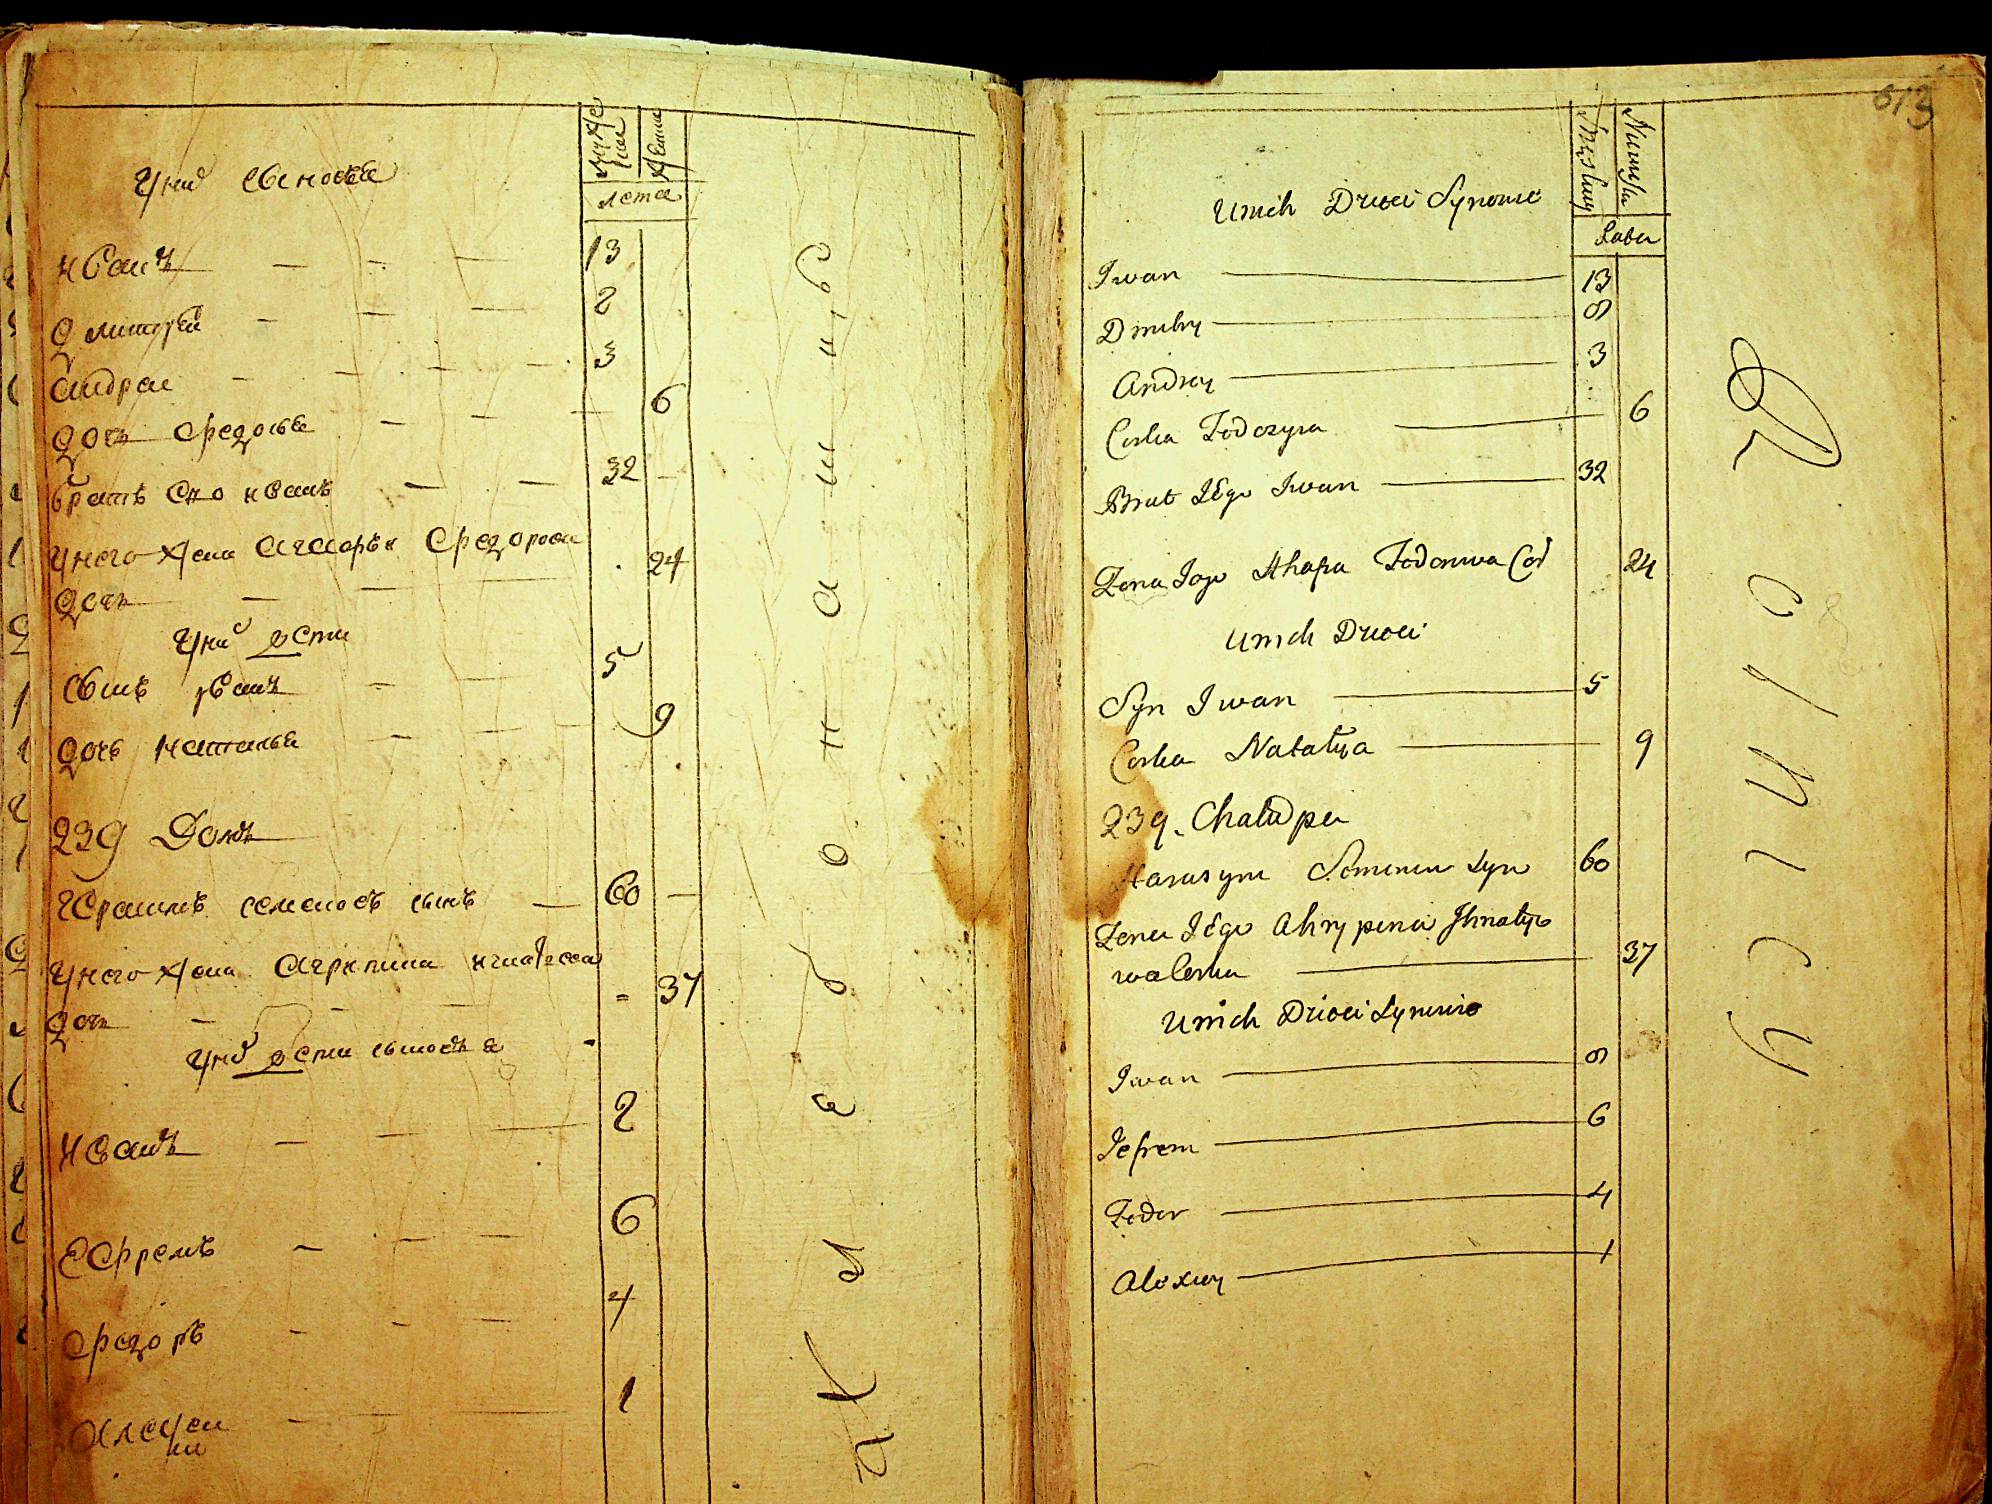 муже
ска
женска
лета
У них сыновья
Иванъ 13
Дмитрей 8
Андрей 3
Дочь Федосья 6
братъ ево Иванъ 32
У него жена Агафья Федорова 24
Дочь
У них дети
сынъ Иванъ 5
Дочь Наталья 9
239 Домъ
Герасимъ семеновъ сынъ 60
У него жена Агрипина игнатьева = 37
дочь
У них дети сыновья
Иванъ 8
Ефремъ 6
Федоръ 4
Алексеи 1
613
Męska
Niewska
Lata
Unich Dzieci Synowie
Iwan 13
Dmitry 8
Andrey 3
Corka Fodozyia 6
Brat Iego Iwan 32
Zona Iego Ahafia Fodorowa Cor 24
Unich Dzieci
Syn Iwan 5
Corka Natalya 9
239. Chalupa
Harasym Semenow Syn 60
Zona Iego Ahrypina Ihnatyo
wa Corka 37
Unich Dzieci Synowie
Iwan 8
Iefrem 6
Fedor 4
Alexiey 1